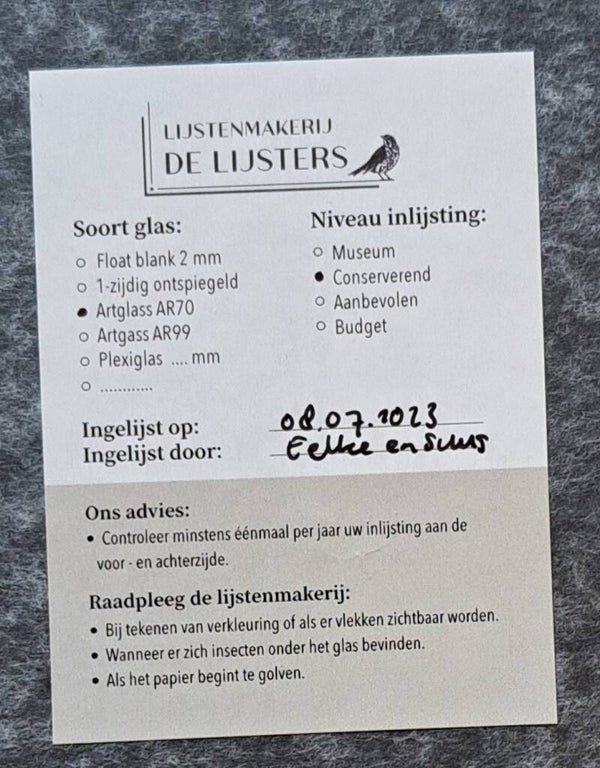 LIJSTENMAKERIJ
DE LIJSTERS
Soort glas:
○ Float blank 2 mm
○ 1-zijdig ontspiegeld
● Artglass AR70
○ Artgass AR99
○ Plexiglas .... mm
○ ............
Niveau inlijsting:
○ Museum
● Conserverend
○ Aanbevolen
○ Budget
Ingelijst op: 08.07.2023
Ingelijst door: Eelke en Suus
Ons advies:
• Controleer minstens éénmaal per jaar uw inlijsting aan de
voor - en achterzijde.
Raadpleeg de lijstenmakerij:
• Bij tekenen van verkleuring of als er vlekken zichtbaar worden.
• Wanneer er zich insecten onder het glas bevinden.
• Als het papier begint te golven.